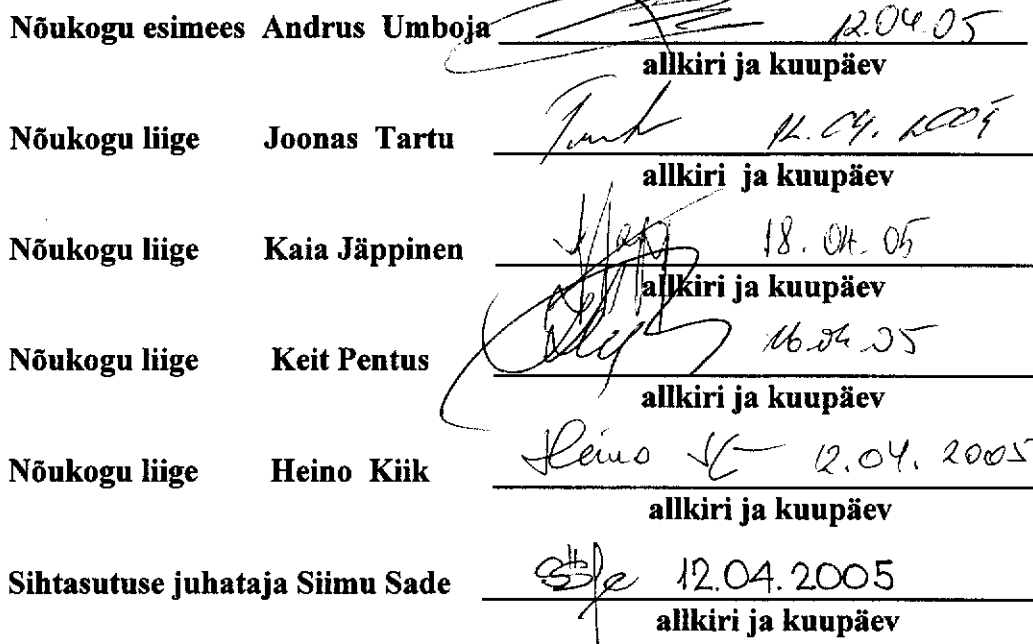 Nõukogu esimees Andrus Umboja 12.04.05
allkiri ja kuupäev
Nõukogu liige Joonas Tartu 12.04.2005
allkiri ja kuupäev
Nõukogu liige Kaia Jäppinen 18.04.05
allkiri ja kuupäev
Nõukogu liige Keit Pentus 16.04.05
allkiri ja kuupäev
Nõukogu liige Heino Kiik Heino 12.04.2005
allkiri ja kuupäev
Sihtasutuse juhataja Siimu Sade 12.04.2005
allkiri ja kuupäev